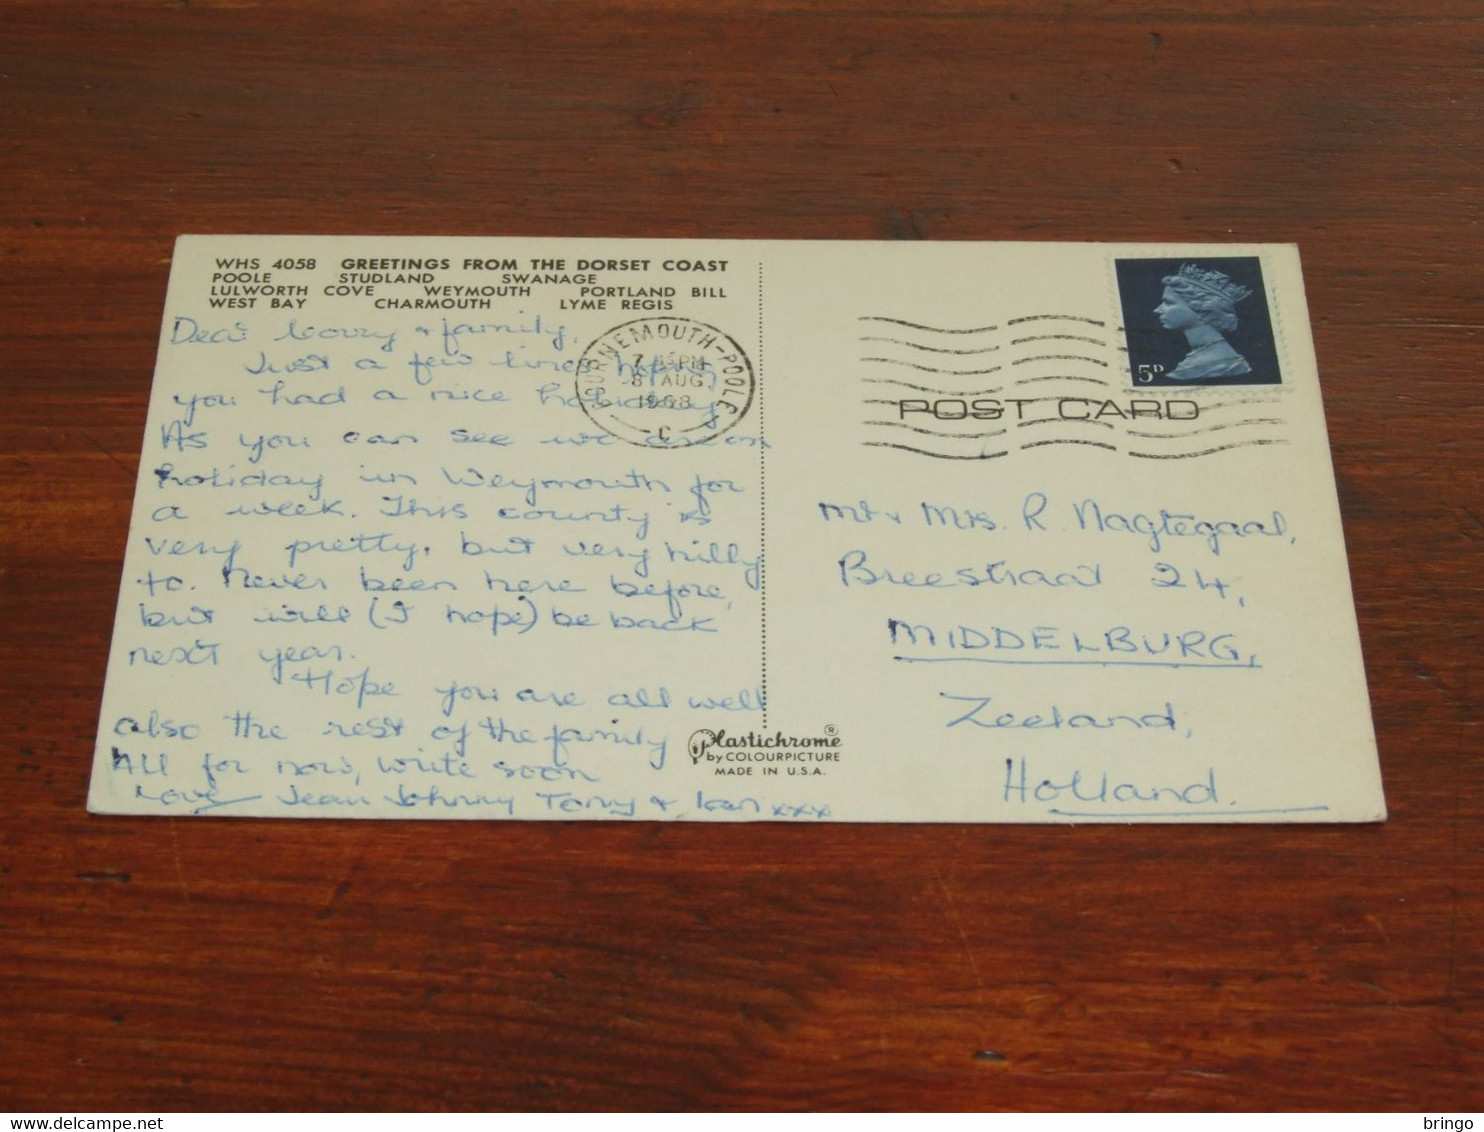 WHS 4058 GREETINGS FROM THE DORSET COAST
POOLE STUDLAND SWANAGE
LULWORTH COVE WEYMOUTH PORTLAND BILL
WEST BAY CHARMOUTH LYME REGIS
Dear Corry & family,
Just a few lines hoping
you had a nice holiday.
As you can see we are on
holiday in Weymouth for
a week. This county is
very pretty, but very hilly
to. Never been here before,
but will (I hope) be back
next year.
Hope you are all well
also the rest of the family
All for now, write soon
Love Jean Johnny Tony & Ian xxxx
BOURNEMOUTH-POOLE
7 15 PM
8 AUG
1968
C
Plastichrome ®
by COLOURPICTURE
MADE IN U.S.A.
5D
POST CARD
Mr & Mrs. R. Nagtegaal,
Breestraat 24,
MIDDELBURG,
Zeeland,
Holland.
delcampe.net
bringo